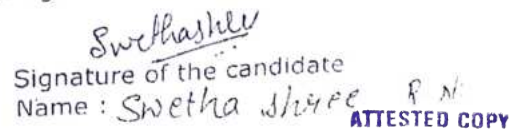 Swethashree
Signature of the candidate
Name : Swetha shree R N.
ATTESTED COPY